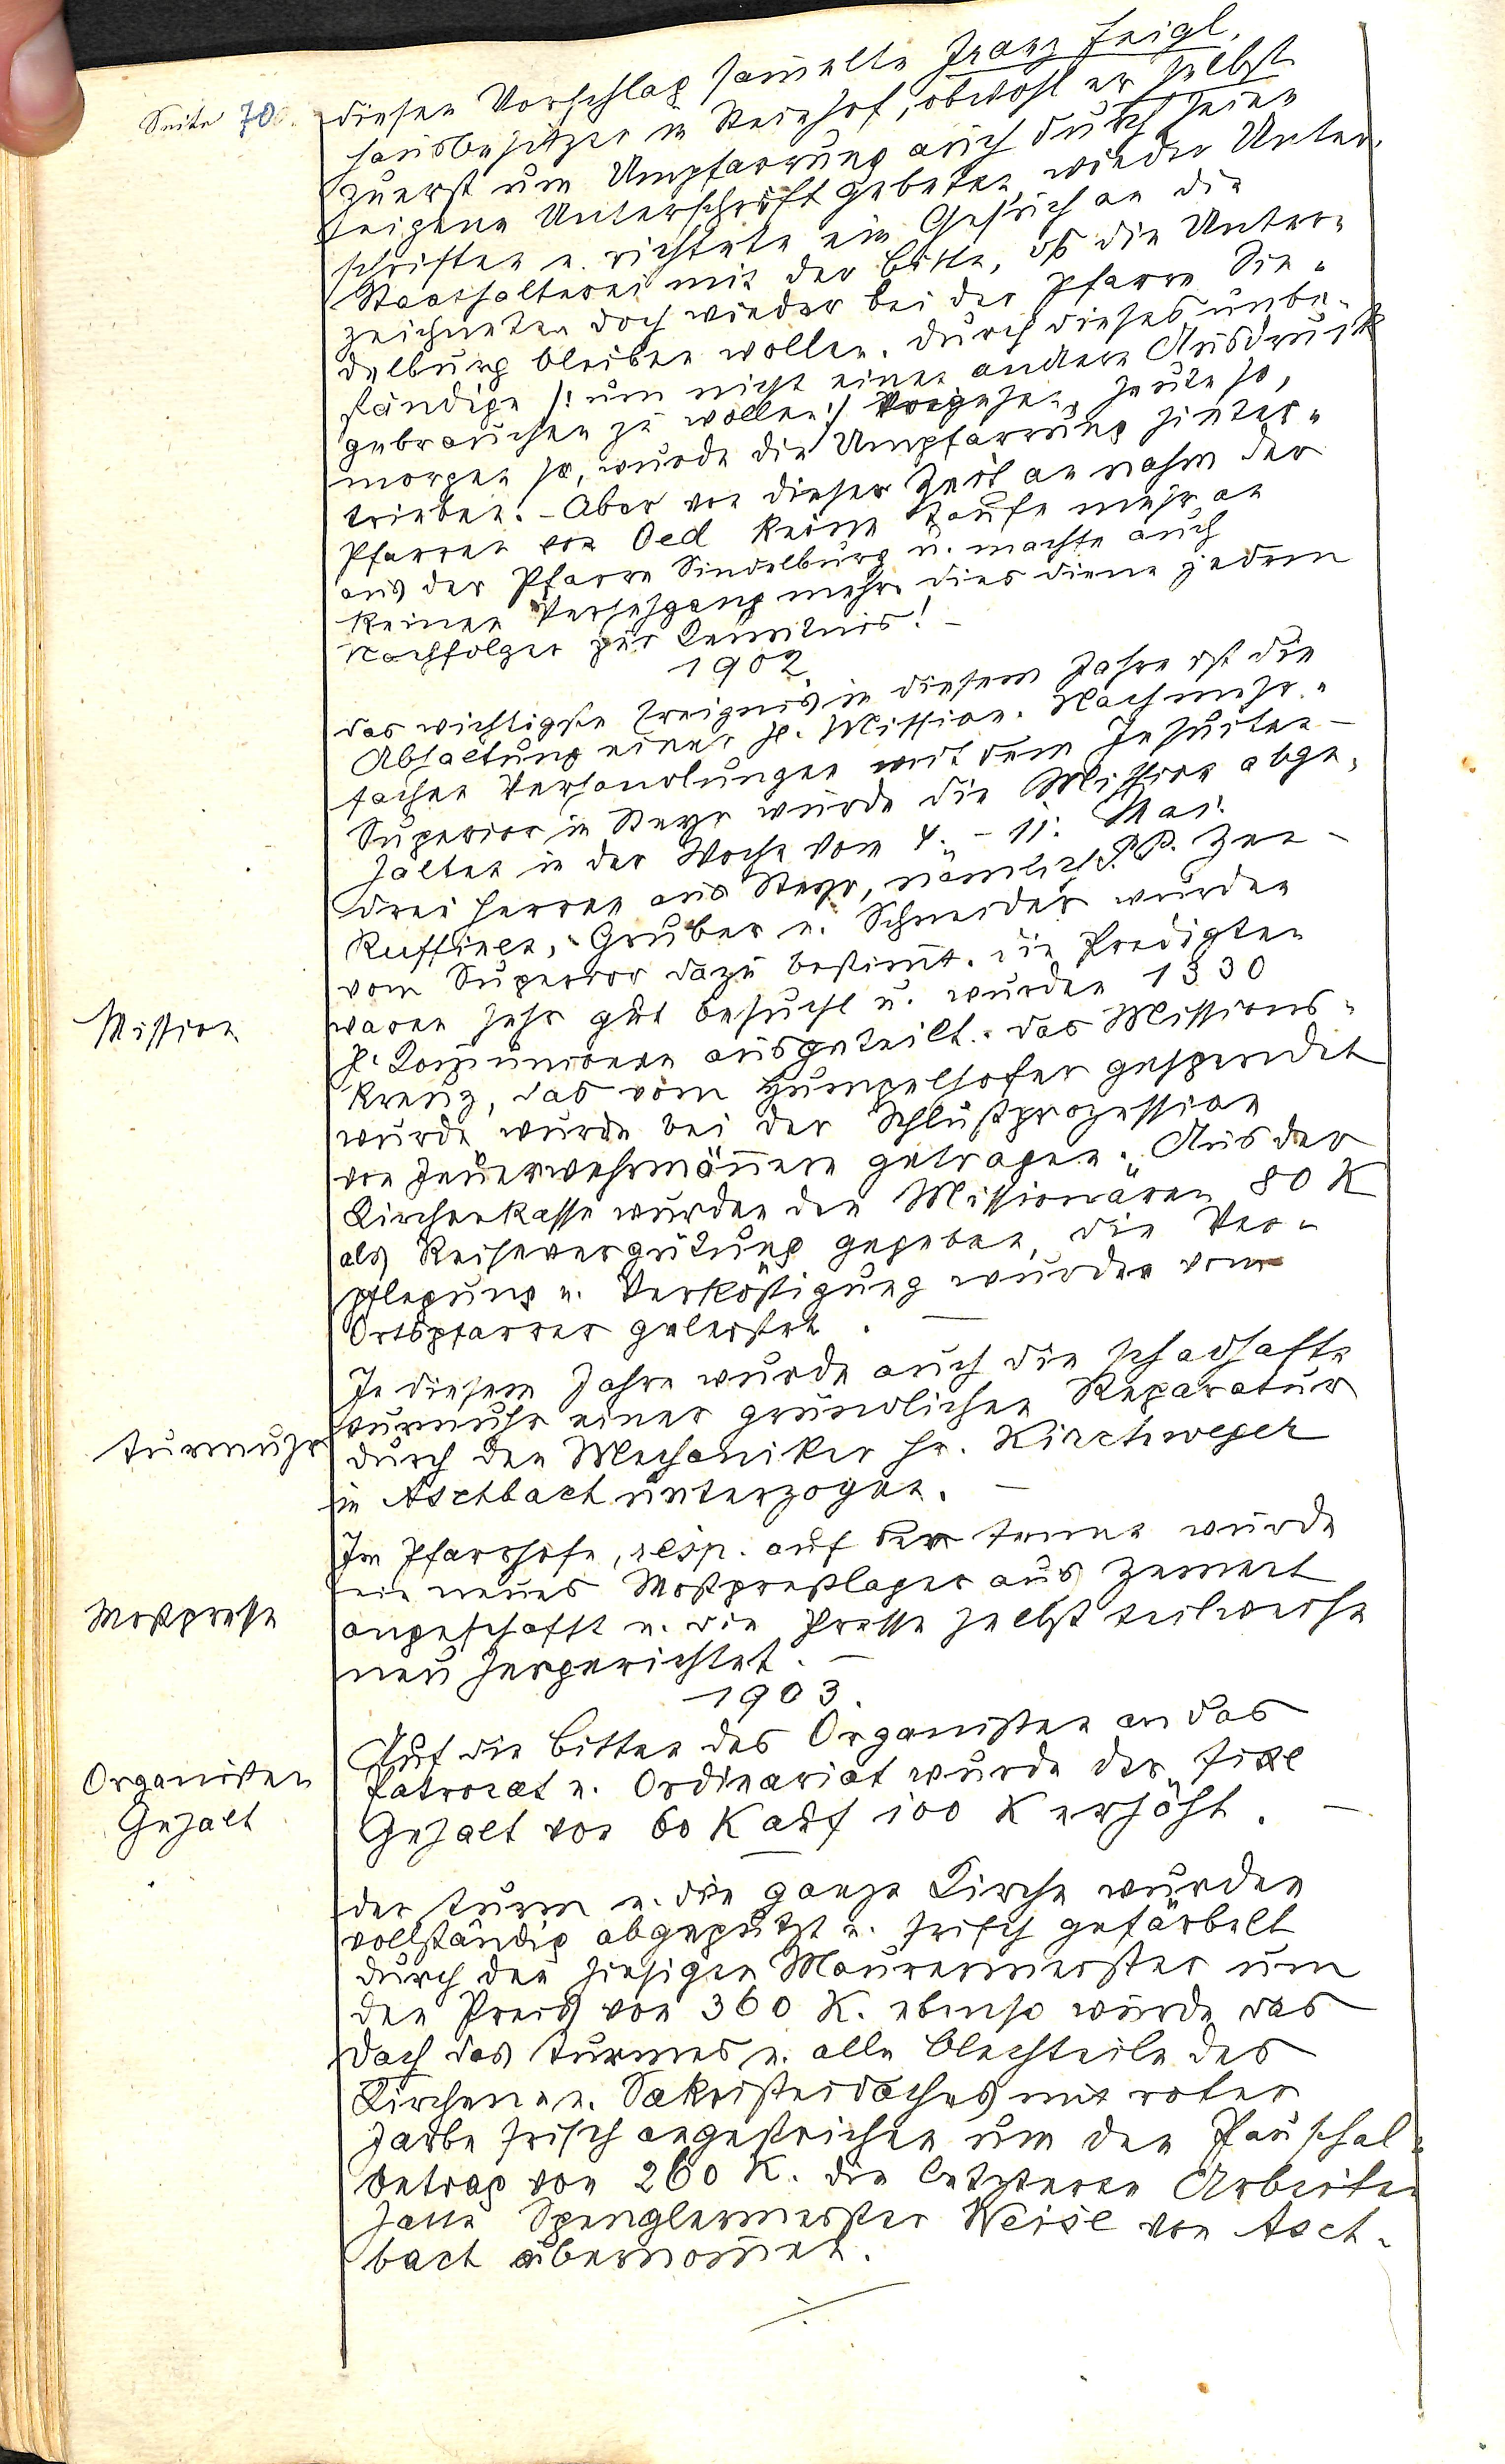 Seite 70.
diesen Vorschlag sammelte Franz Zeigl,
Hausbesitzer in Steinhof, obwohl er selbst
zuerst um Umpfarrung auch durch seine
eigene Unterschrift gebeten, wieder Unter-
schriften u. richtete ein Gesuch an die
Statthalterei mit der Bitte, daß die Unter-
zeichneten doch wieder bei der Pfarre Sin-
delburg bleiben wollen. Durch dieses unbe-
ständige /: um nicht einen andern Ausdruck
gebrauchen zu wollen :/ Vorgehen, heute so,
morgen so, wurde die Umpfarrung hinter-
trieben. - Aber von dieser Zeit an nahm der
Pfarrer von Oed keine Taufe mehr an
aus der Pfarre Sindelburg u. machte auch
keinen Versehgang mehr. Dies diene jedem
Nachfolger zur Kenntnis! -
1902.
Das wichtigste Ereignis in diesem Jahre ist die
Abhaltung einer hl. Mission. Nach mehr-
fachen Verhandlungen mit dem Jesuiten-
Superior in Steyr wurde die Mission abge-
halten in der Woche vom 4. - 11. Mai.
Drei Herren aus Steyr, nämlich P.P. Zen-
Ruffinen, Gruber u. Schneider wurden
vom Superior dazu bestimmt. Die Predigten
Mission
waren sehr gut besucht u. wurden 1330
hl. Kommunionen ausgeteilt. Das Missions-
kreuz, das vom Humpelhofer gespendet
wurde, wurde bei der Schlußprozession
von Feuerwehrmännern getragen. Aus der
Kirchenkasse wurden den Missionären 80 K
als Reisevergütung gegeben, die Ver-
pflegung u. Verköstigung wurden vom
Ortspfarrer geleistet. -
In diesem Jahre wurde auch die schadhafte
Turmuhr
Turmuhr einer gründlichen Reparatur
durch den Mechaniker Hr. Kirchweger
in Aschbach unterzogen. -
Im Pfarrhofe, resp. auf der Tenne wurde
ein neues Mostpreßlager aus Zement
Mostpresse
angeschafft u. die Presse selbst teilweise
neu hergerichtet. -
1903.
Auf die Bitten des Organisten an das
Organisten
Gehalt
Patronat u. Ordinariat wurde der fixe
Gehalt von 60 K auf 100 K erhöht. -
Der Turm u. die ganze Kirche wurden
vollständig abgeputzt u. frisch gefärbelt
durch den hiesigen Maurermeister um
den Preis von 360 K. Ebenso wurde das
Dach des Turmes u. alle Blechteile des
Kirchen- u. Sakristeidaches mit roter
Farbe frisch angestrichen um den Pauschal-
betrag von 260 K. Die letzteren Arbeiten
hatte Spenglermeister Weisl von Asch-
bach übernommen.